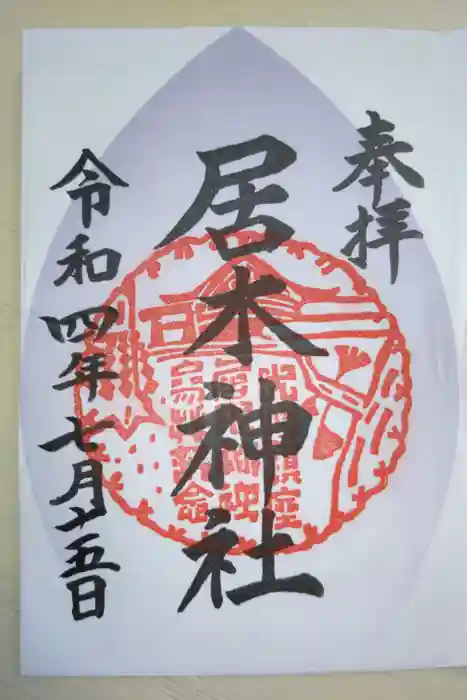 奉拝
居木神社
令和四年七月廿五日